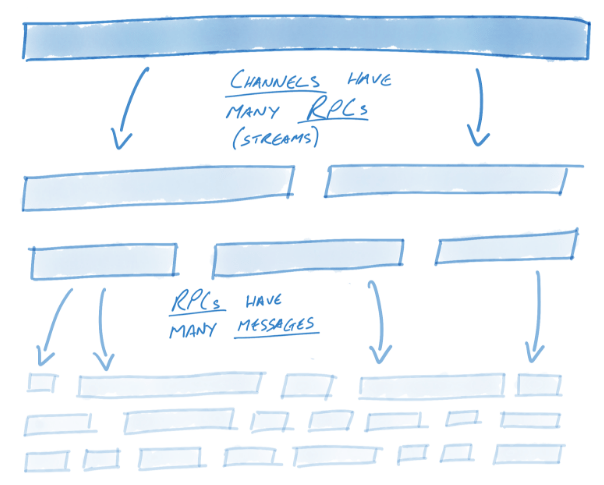 CHANNELS HAVE
MANY RPCs
(STREAMS)
RPCs HAVE
MANY MESSAGES